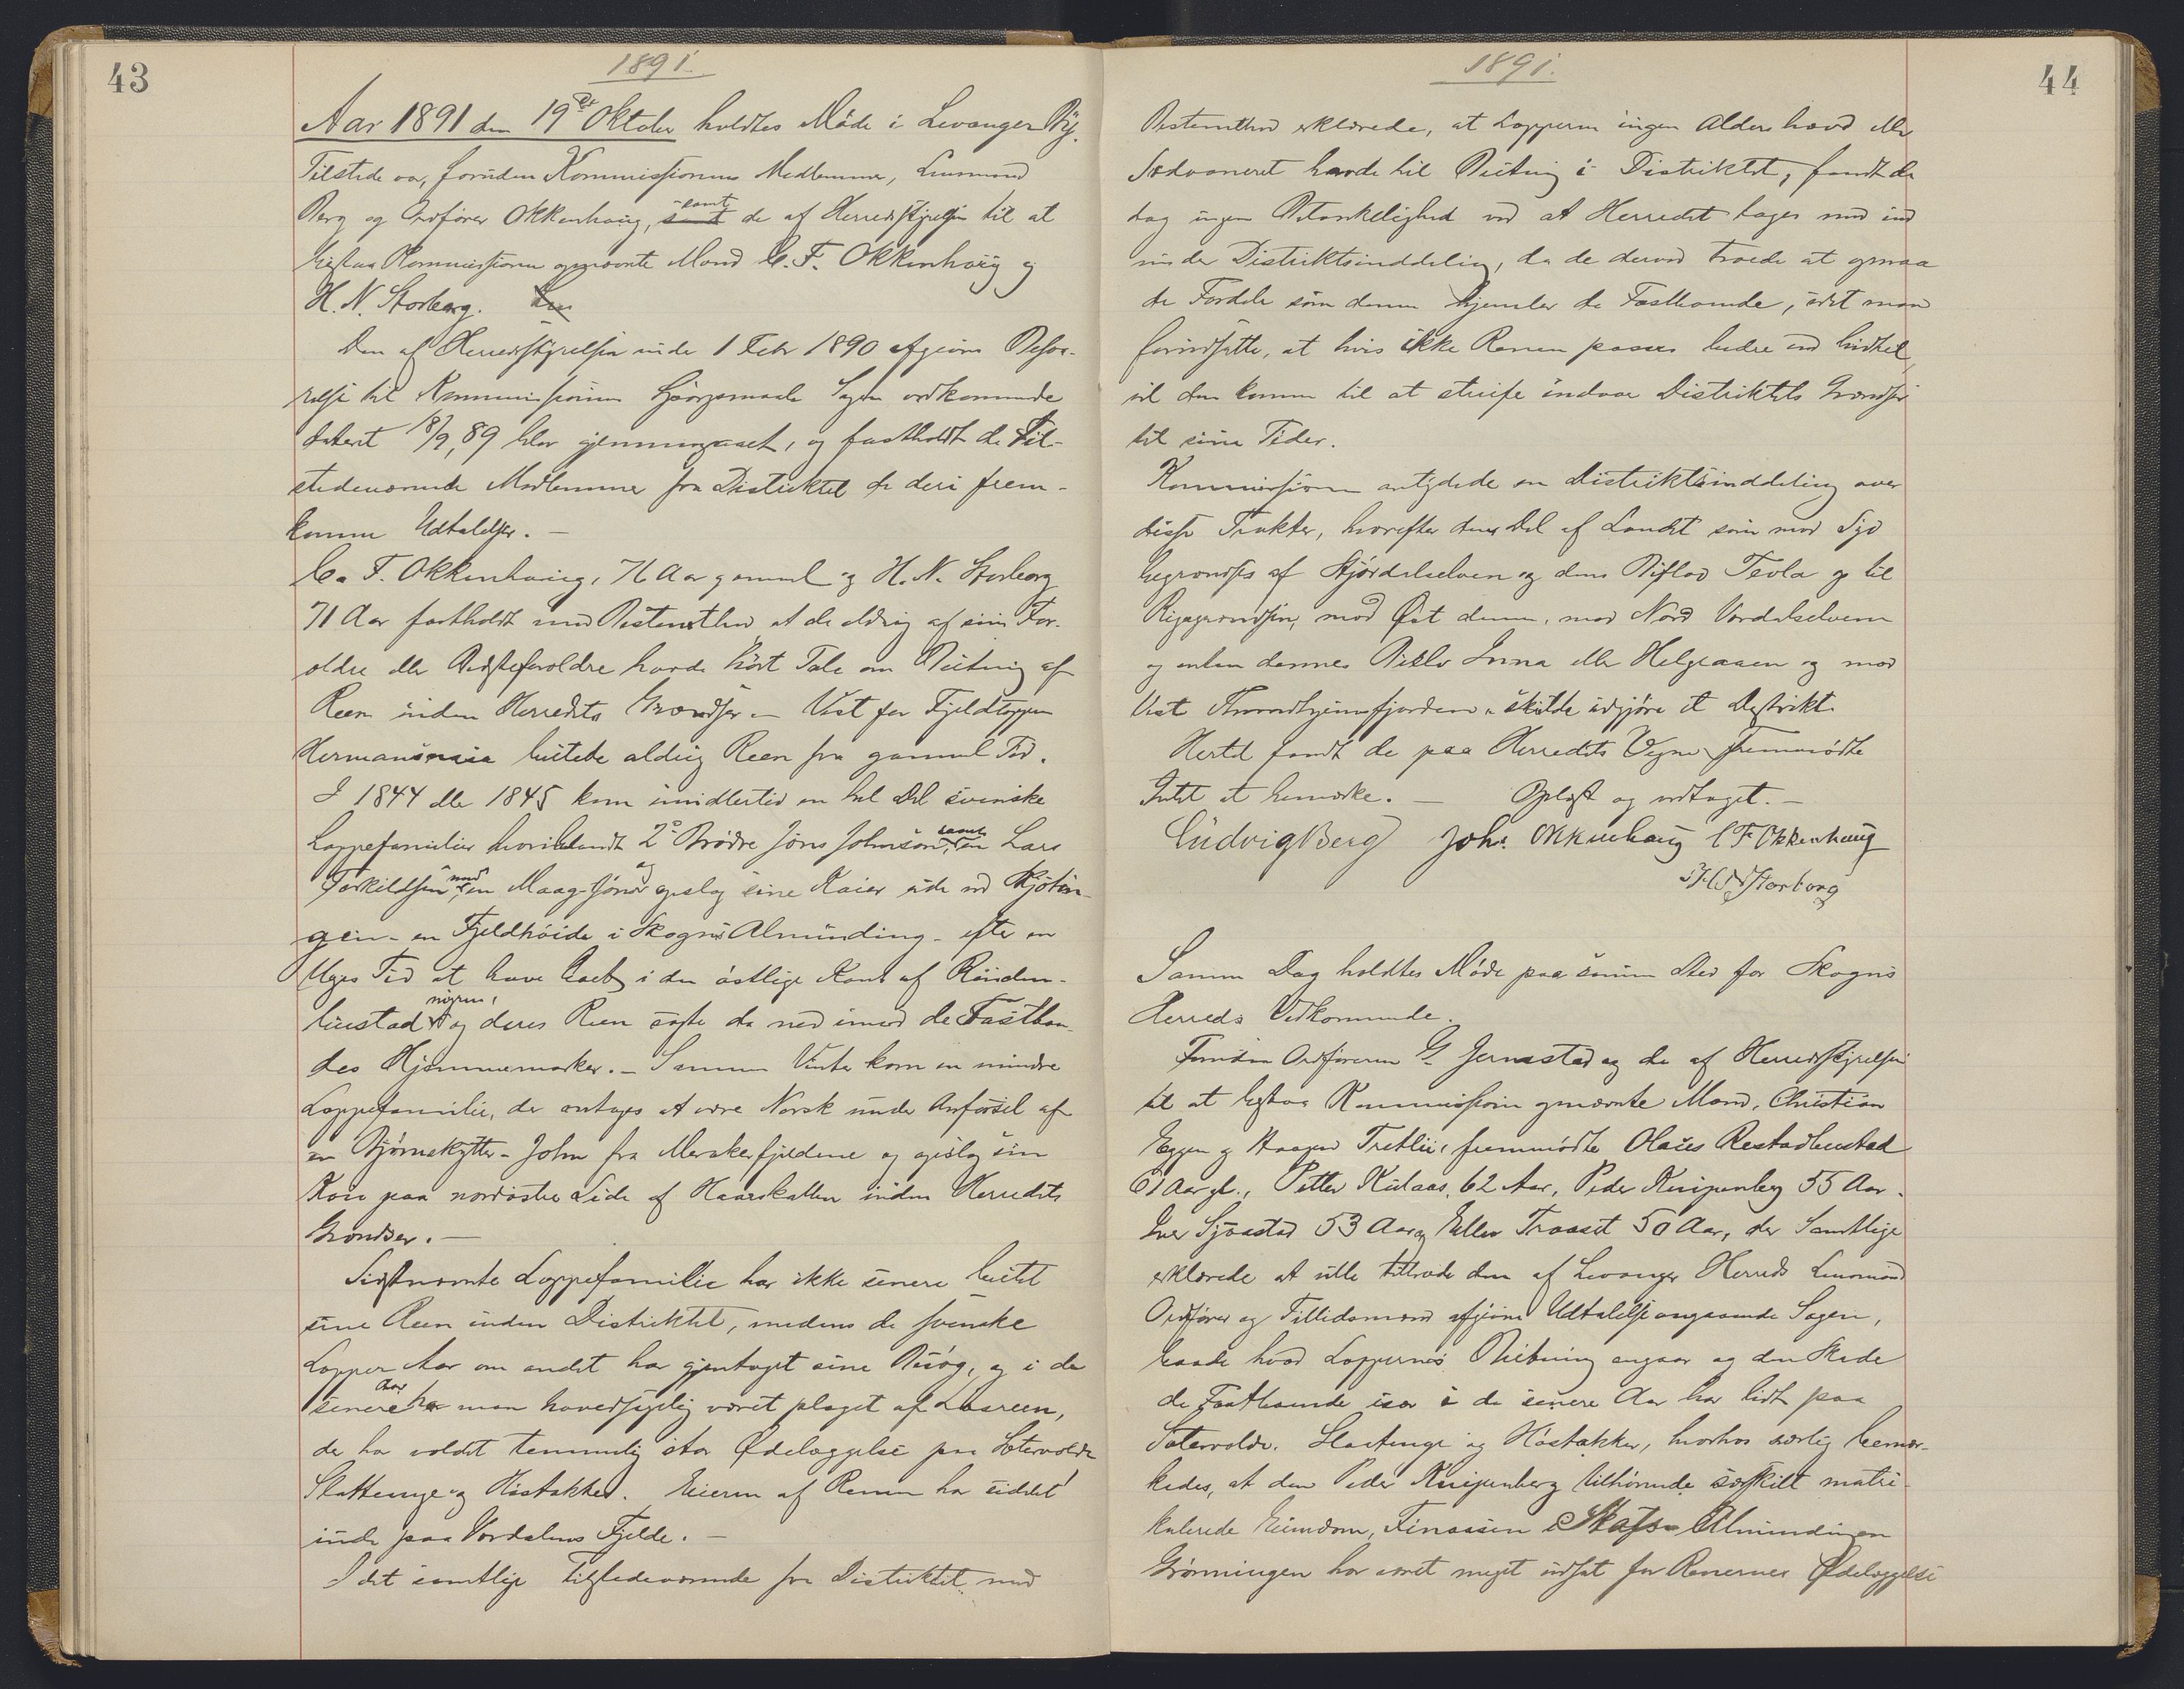 43
1891.
Aar 1891 den 19de Oktober holdtes Møde i Levanger By.
Tilstede var, foruden Kommissionens Medlemmer, Lensmand
Berg og Ordfører Okkenhaug, samt de af Herredsstyrelsen til at
bistaa Kommissionen opnævnte Mænd C. F. Okkenhaug og
H. N. Storborg.
Den af Herredsstyrelsen under 1 Febr 1890 afgivne Besva-
relse til Kommissionens Spørgsmaale Sagen vedkommende
dateret 18/9, 89 blev gjennemgaaet, og fastholdt de Til-
stedeværende Medlemmer fra Distriktet de deri frem-
komne Udtalelser. —
C. F. Okkenhaug, 76 Aar gammel og H. N. Storborg
71 Aar fastholdt med Bestemthed at de aldrig af sine For-
ældre eller Bedsteforældre havde hørt Tale om Beitning af
Reen inden Herredets Grændser. — Vest for Fjeldtoppen
Hermansnasa beitede aldrig Reen fra gammel Tid.
I 1844 eller 1845 kom imidlertid en hel Del svenske
Lappefamilier hvoriblandt 2de Brødre Jøns Johnsøn, samt en Lars
Torkildsen med en Maag Jøns og opslog sine Kaier ude ved Kjøtin-
gen - en Fjeldhøide i Skogns Almünding - efter en
Uges Tid at have været i den østlige Kant af Reinden-
beistad nogen, og deres Reen søgte da ned imod de Fastboen-
des Hjemmemarker. — Samme Vinter kom en mindre
Lappefamilie, der antages at være Norsk under Anførsel af
en Bjørneskytter - John fra Merakerfjeldene og opslog sin
Koie paa nordøstre Side af Haarskallen inden Herredets
Grændser. —
Sidstnævnte Lappefamilie har ikke senere beitet
sine Reen inden Distriktet, medens de svenske
Lapper Aar om andet har gjentaget sine Besøg, og i de
senere Aar har man hovedsagelig været plaget af Løsreen,
der har voldet temmelig stor Ødelæggelse paa Sætervolde
Slaattenge og Høstakker. Eieren af Renen har siddet
inde paa Værdalens Fjelde. —
I det samtlige Tilstedeværende fra Distriktet med
44
1891.
Bestemthed erklærede, at Lapperne ingen Alders hævd eller
Sædvaneret havde til Beitning i Distriktet, fandt de
dog ingen Betænkelighed ved at Herredet tages med ind
under Distriktsinddeling, da de derved troede at opnaa
de Fordele som denne hjemler de Fastboende, idet man
forudsatte, at hvis ikke Renen passes bedre end hidtil,
vil den komme til at streife indover Distriktets Grændser
til sine Tider.
Kommissionen antydede en Distriktsinddeling over
disse Trakter, hvorefter den Del af Landet som mod Syd
begrændses af Stjørdalselven og dens Bielv Tevla og til
Rigsgrændsen, mod Øst denne, mod Nord Værdalselven
og enten dennes Bielv Inna eller Helgeaaen og mod
Vest Throndhjemsfjorden skulde udgjøre et Distrikt.
Hertil fandt de paa Herredets Vegne fremmødte
Intet at bemærke. — Oplæst og vedtaget. —
Ludvig Berg Johs. Okkenhaug C F Okkenhaug
H N Storborg
Samme Dag holdtes Møde paa samme Sted for Skogns
Herreds Vedkommende.
Foruden Ordføreren G. Jermstad og de af Herredsstyrelsen
til at bistaa Kommissionen opnævnte Mænd, Christian
Eggen og Haagen Tretlie, fremmødte Olaus Restadbeistad
61 Aar gl., Petter Kulaas, 62 Aar, Peder Kneipenberg 55 Aar,
Iver Sjaastad 53 Aar og Ellev Traaset 50 Aar, der Samtlige
erklærede at ville tiltræde den af Levanger Herreds Lensmand
Ordfører og Tillidsmænd afgivne Udtalelse angaaende Sagen,
baade hvad Lappernes Beitning angaar og den Skade
de Fastboende især i de senere Aar har lidt paa
Sætervolde. Slaatenge og Høstakker, hvorhos særlig bemær-
kedes, at den Peder Kneipenberg tilhørende særskilt matri-
kulerede Eiendom, Almindingen
Grønningen har været meget udsat for Renernes Ødelæggelse